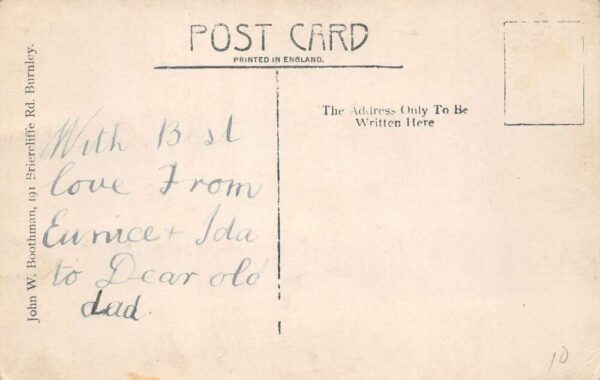 POST CARD
PRINTED IN ENGLAND.
The Address Only To Be
Written Here
John W. Boothman, 191 Briercliffe Rd. Burnley.
With Best
love From
Eunice + Ida
to Dear old
dad.
10